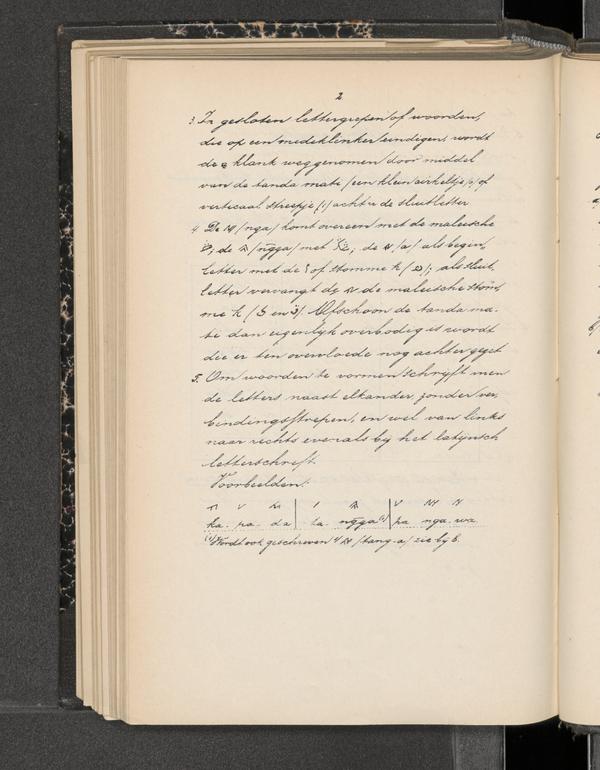 2
3. In gesloten lettergrepen of woorden,
die op een medeklinker eindigen, wordt
de a klank weggenomen door middel
van de tanda mati (een klein cirkeltje (o) of
verticaal streepje (ı) achter de sluitletter
4. De (nga) komt overeen met de maleische
; de (ngga) met ; de (a) als begin,
letter met de of stomme k ( ); als sluit,
letter vervangt de de maleische stom,
me k ( en ). Ofschoon de tanda ma-
ti dan eigenlyk overbodig is wordt
die er ten overvloede nog achter gezet
5. Om woorden te vormen schryft men
de letters naast elkander zonder ver,
bindingsstrepen, en wel van links
naar rechts evenals by het latynsch
letterschrift.
Voorbeelden:
ka. pa. da | ta. ngga (1) | pa nga. wa
(1) Wordt ook geschreven (tang-a) zie by 6.